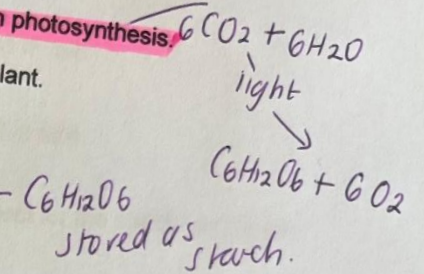 n photosynthesis. 6CO2 + 6H2O
lant.
light
C6H12O6 + 6O2
- C6H12O6
stored as
starch.